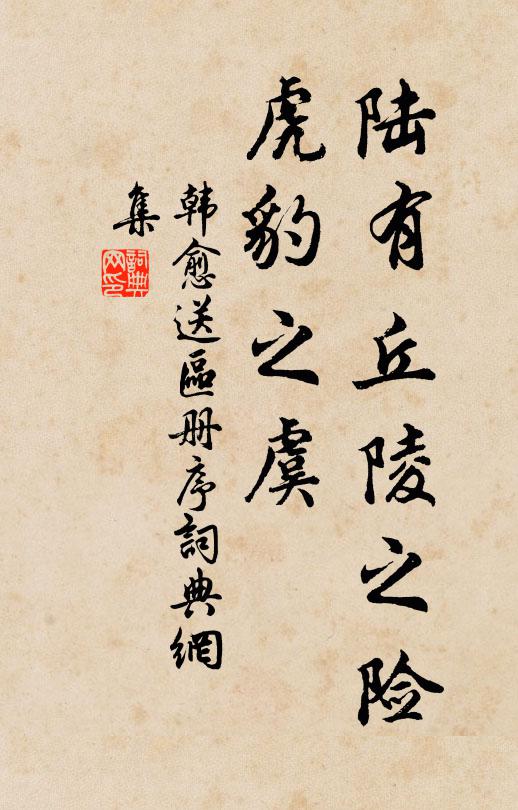 陆有丘陵之险
虎豹之虞
韩愈送區册序詞典網
集
詞典
网印